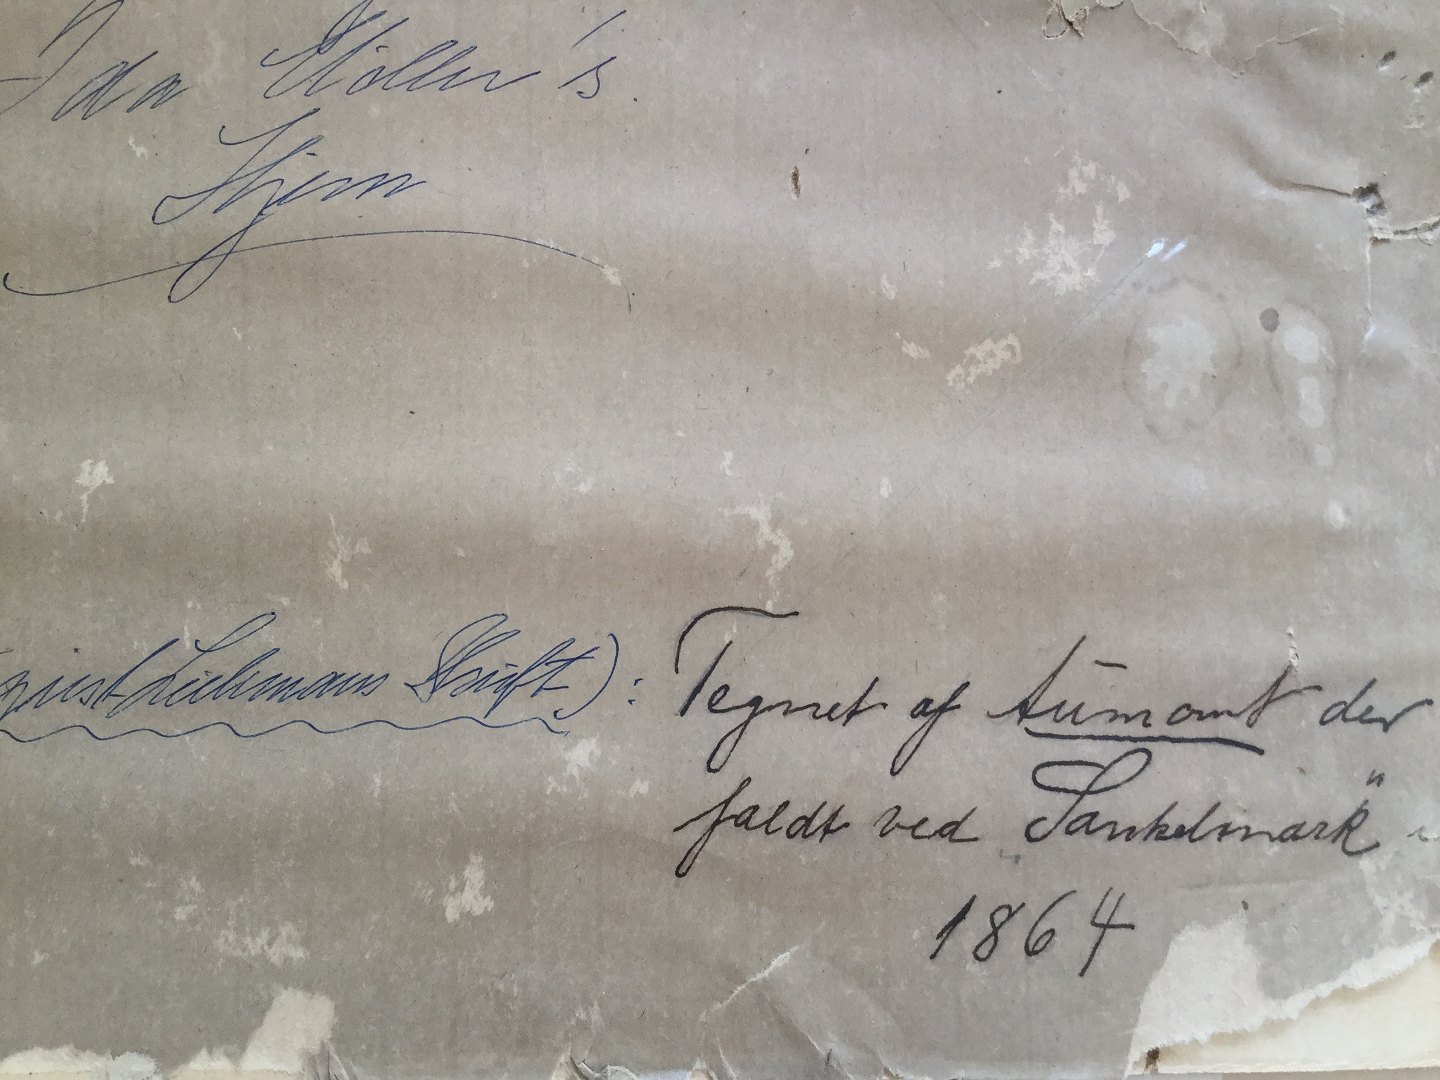 Ida Møller's
Hjem
Liebmans Skrift):
Tegnet af Aumont der
faldt ved "Sankelmark"
1864